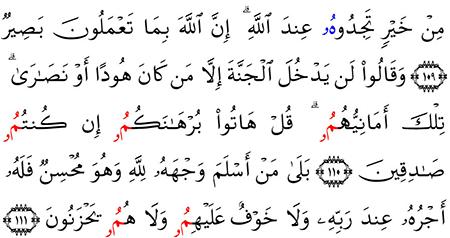 مِنْ خَيْرٍ تَجِدُوهُۥ عِندَ ٱللَّهِ ۗ إِنَّ ٱللَّهَ بِمَا تَعْمَلُونَ بَصِيرٌ
١٠٩ وَقَالُوا۟ لَن يَدْخُلَ ٱلْجَنَّةَ إِلَّا مَن كَانَ هُودًا أَوْ نَصَٰرَىٰ ۗ
تِلْكَ أَمَانِيُّهُمُۥ ۗ قُلْ هَاتُوا۟ بُرْهَٰنَكُمُۥ إِن كُنتُمُۥ
صَٰدِقِينَ ١١٠ بَلَىٰ مَنْ أَسْلَمَ وَجْهَهُۥ لِلَّهِ وَهُوَ مُحْسِنٌ فَلَهُۥ
أَجْرُهُۥ عِندَ رَبِّهِۦ وَلَا خَوْفٌ عَلَيْهِمُۥ وَلَا هُمُۥ يَحْزَنُونَ ١١١